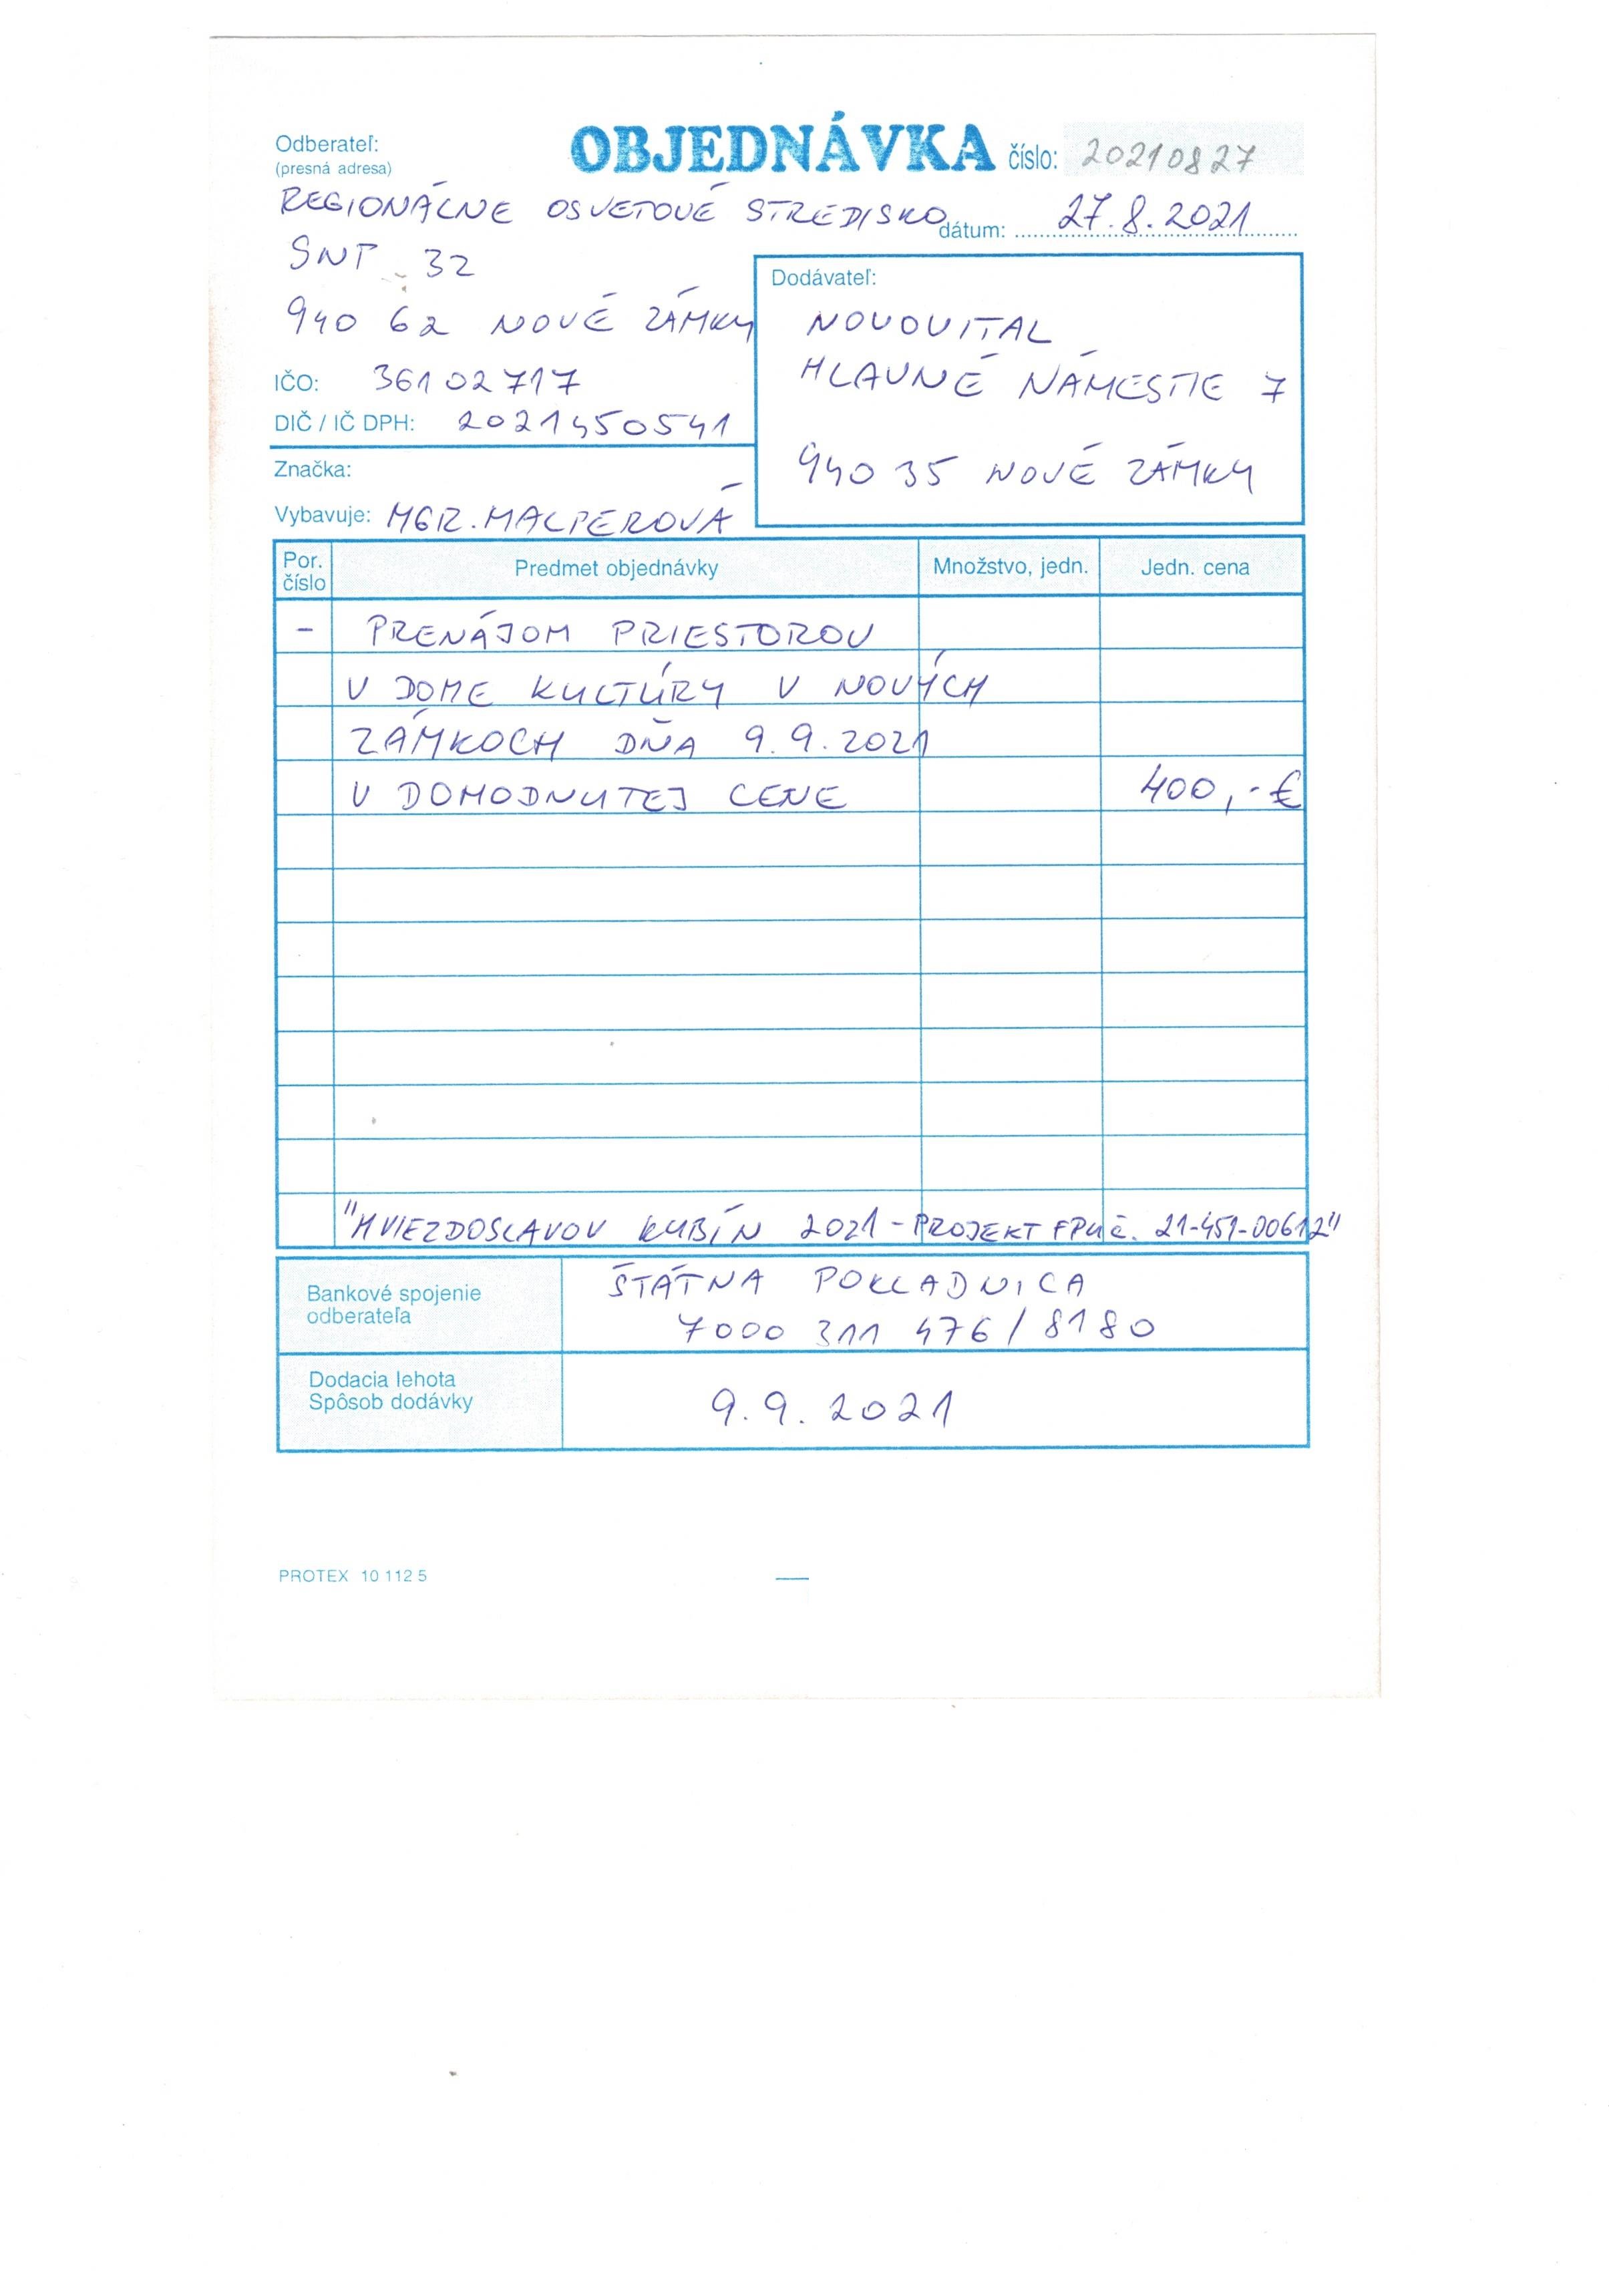 Odberateľ:
(presná adresa)
OBJEDNÁVKA číslo: 20210827
REGIONÁLNE OSVETOVÉ STREDISKO
dátum: 27.8.2021
SNP 32
940 62 NOVÉ ZÁMKY
IČO: 36102717
DIČ / IČ DPH: 2021450541
Značka:
Vybavuje: MGR. MALPEROVÁ
Dodávateľ:
NOVOVITAL
HLAVNÉ NÁMESTIE 7
940 35 NOVÉ ZÁMKY
Por. číslo Predmet objednávky Množstvo, jedn. Jedn. cena
- PRENÁJOM PRIESTOROV
V DOME KULTÚRY V NOVÝCH
ZÁMKOCH DŇA 9.9.2021
V DOHODNUTEJ CENE 400,-€
"HVIEZDOSLAVOV KUBÍN 2021 - PROJEKT FPU č. 21-451-00612"
Bankové spojenie
odberateľa
ŠTÁTNA POKLADNICA
7000 311 476/8180
Dodacia lehota
Spôsob dodávky
9.9.2021
PROTEX 10 112 5